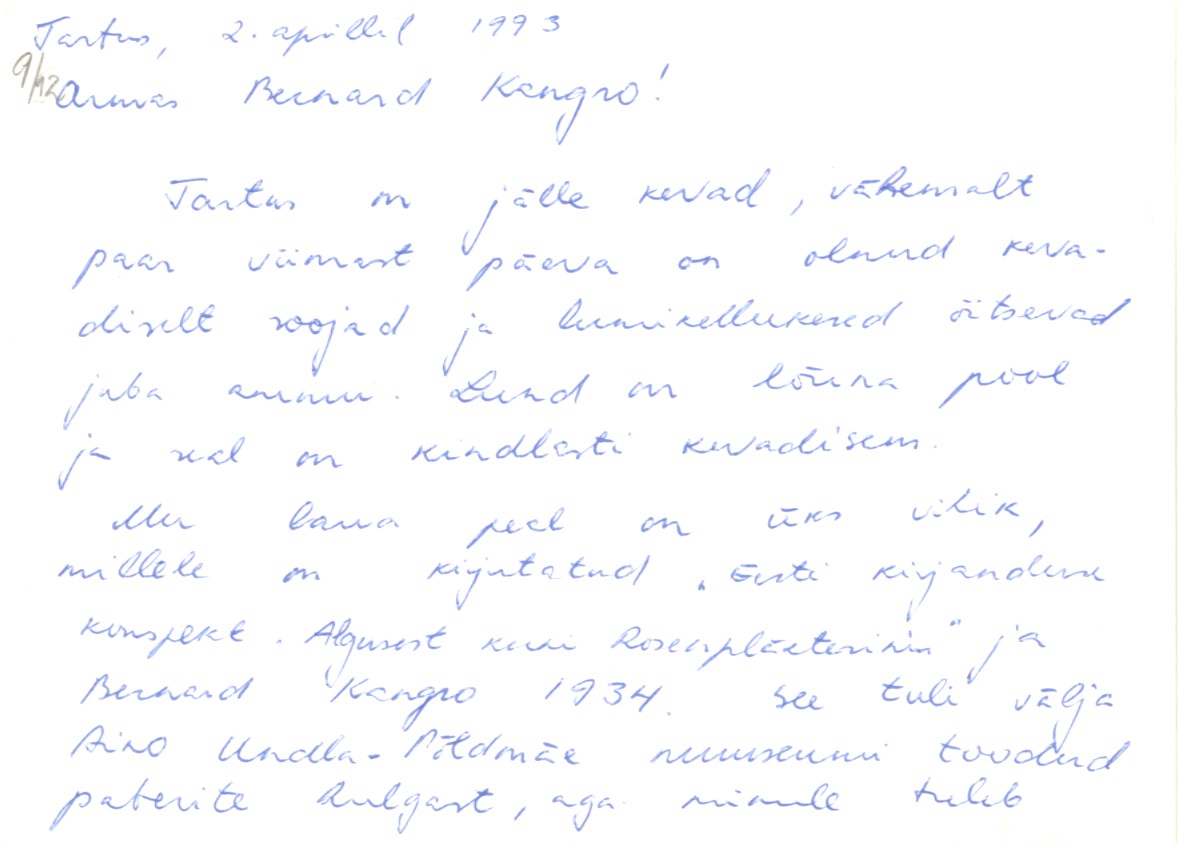 Tartus, 2. aprillil 1993
9/12
Armas Bernard Kangro!
Tartus on jälle kevad, vähemalt
paar viimast päeva on olnud keva-
diselt soojad ja lumikellukesed õitsevad
juba ammu. Lund on lõuna pool
ja seal on kindlasti kevadisem.
Mu laua peal on üks vihik,
millele on kirjutatud „Eesti kirjanduse
konspekt. Algusest kuni Rosenplänterini" ja
Bernard Kangro 1934. See tuli välja
Aino Undla-Põldmäe muuseumi toodud
paberite hulgast, aga minule tuleb